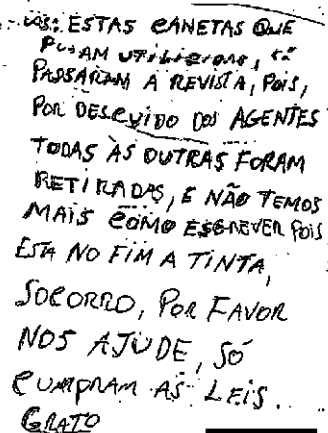 OBS: ESTAS CANETAS QUE
UTILIZADAS, SÓ
PASSARAM A REVISTA, POIS,
POR DESCUIDO DOS AGENTES
TODAS AS OUTRAS FORAM
RETIRADAS, E NÃO TEMOS
MAIS COMO ESCREVER POIS
ESTA NO FIM A TINTA,
SOCORRO, POR FAVOR
NOS AJUDE, SÓ
CUMPRAM AS LEIS..
GRATO